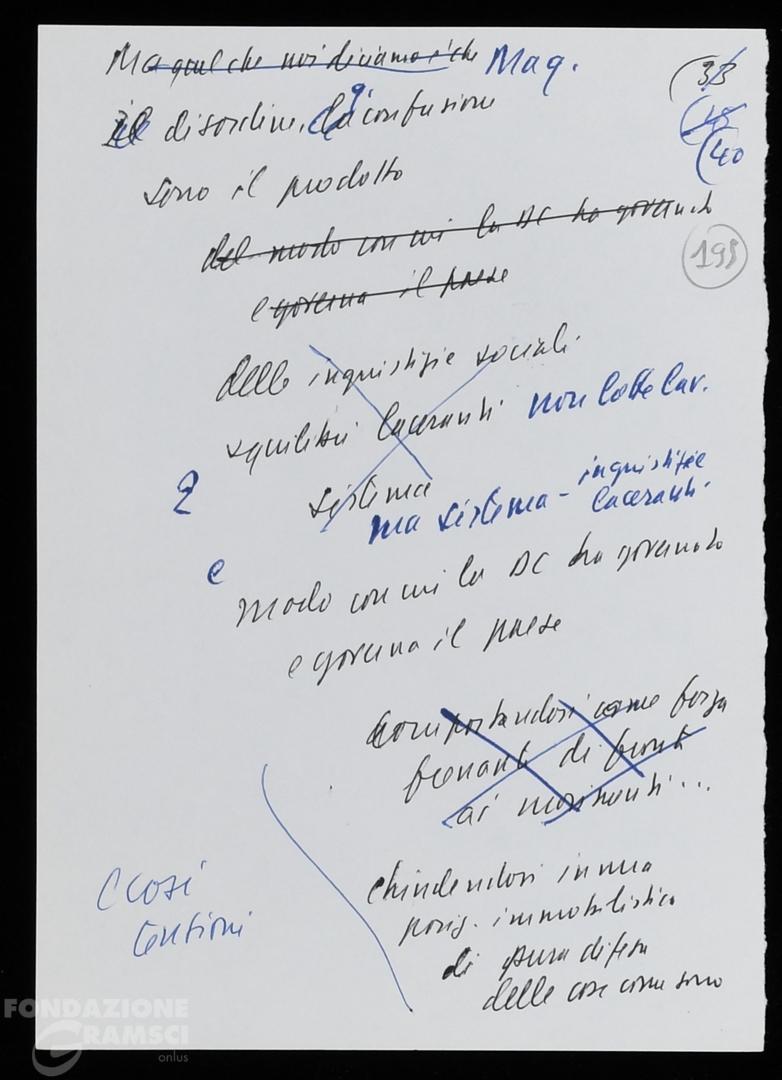 Ma quel che noi diciamo è che Maq.
(33
il disordine, q. la confusione
(40
sono il prodotto
del modo con cui la DC ha governato
193
e governa il paese
delle ingiustizie sociali
squilibri laceranti non lotte lav.
2 sistema
ma sistema - ingiustizie
laceranti
e modo con cui la DC ha governato
e governa il paese
comportandosi come forza
frenante di fronte
ai movimenti...
chiudendosi in una
posiz. immobilistica
di pura difesa
delle cose come sono
E così
tensioni
FONDAZIONE
GRAMSCI
onlus